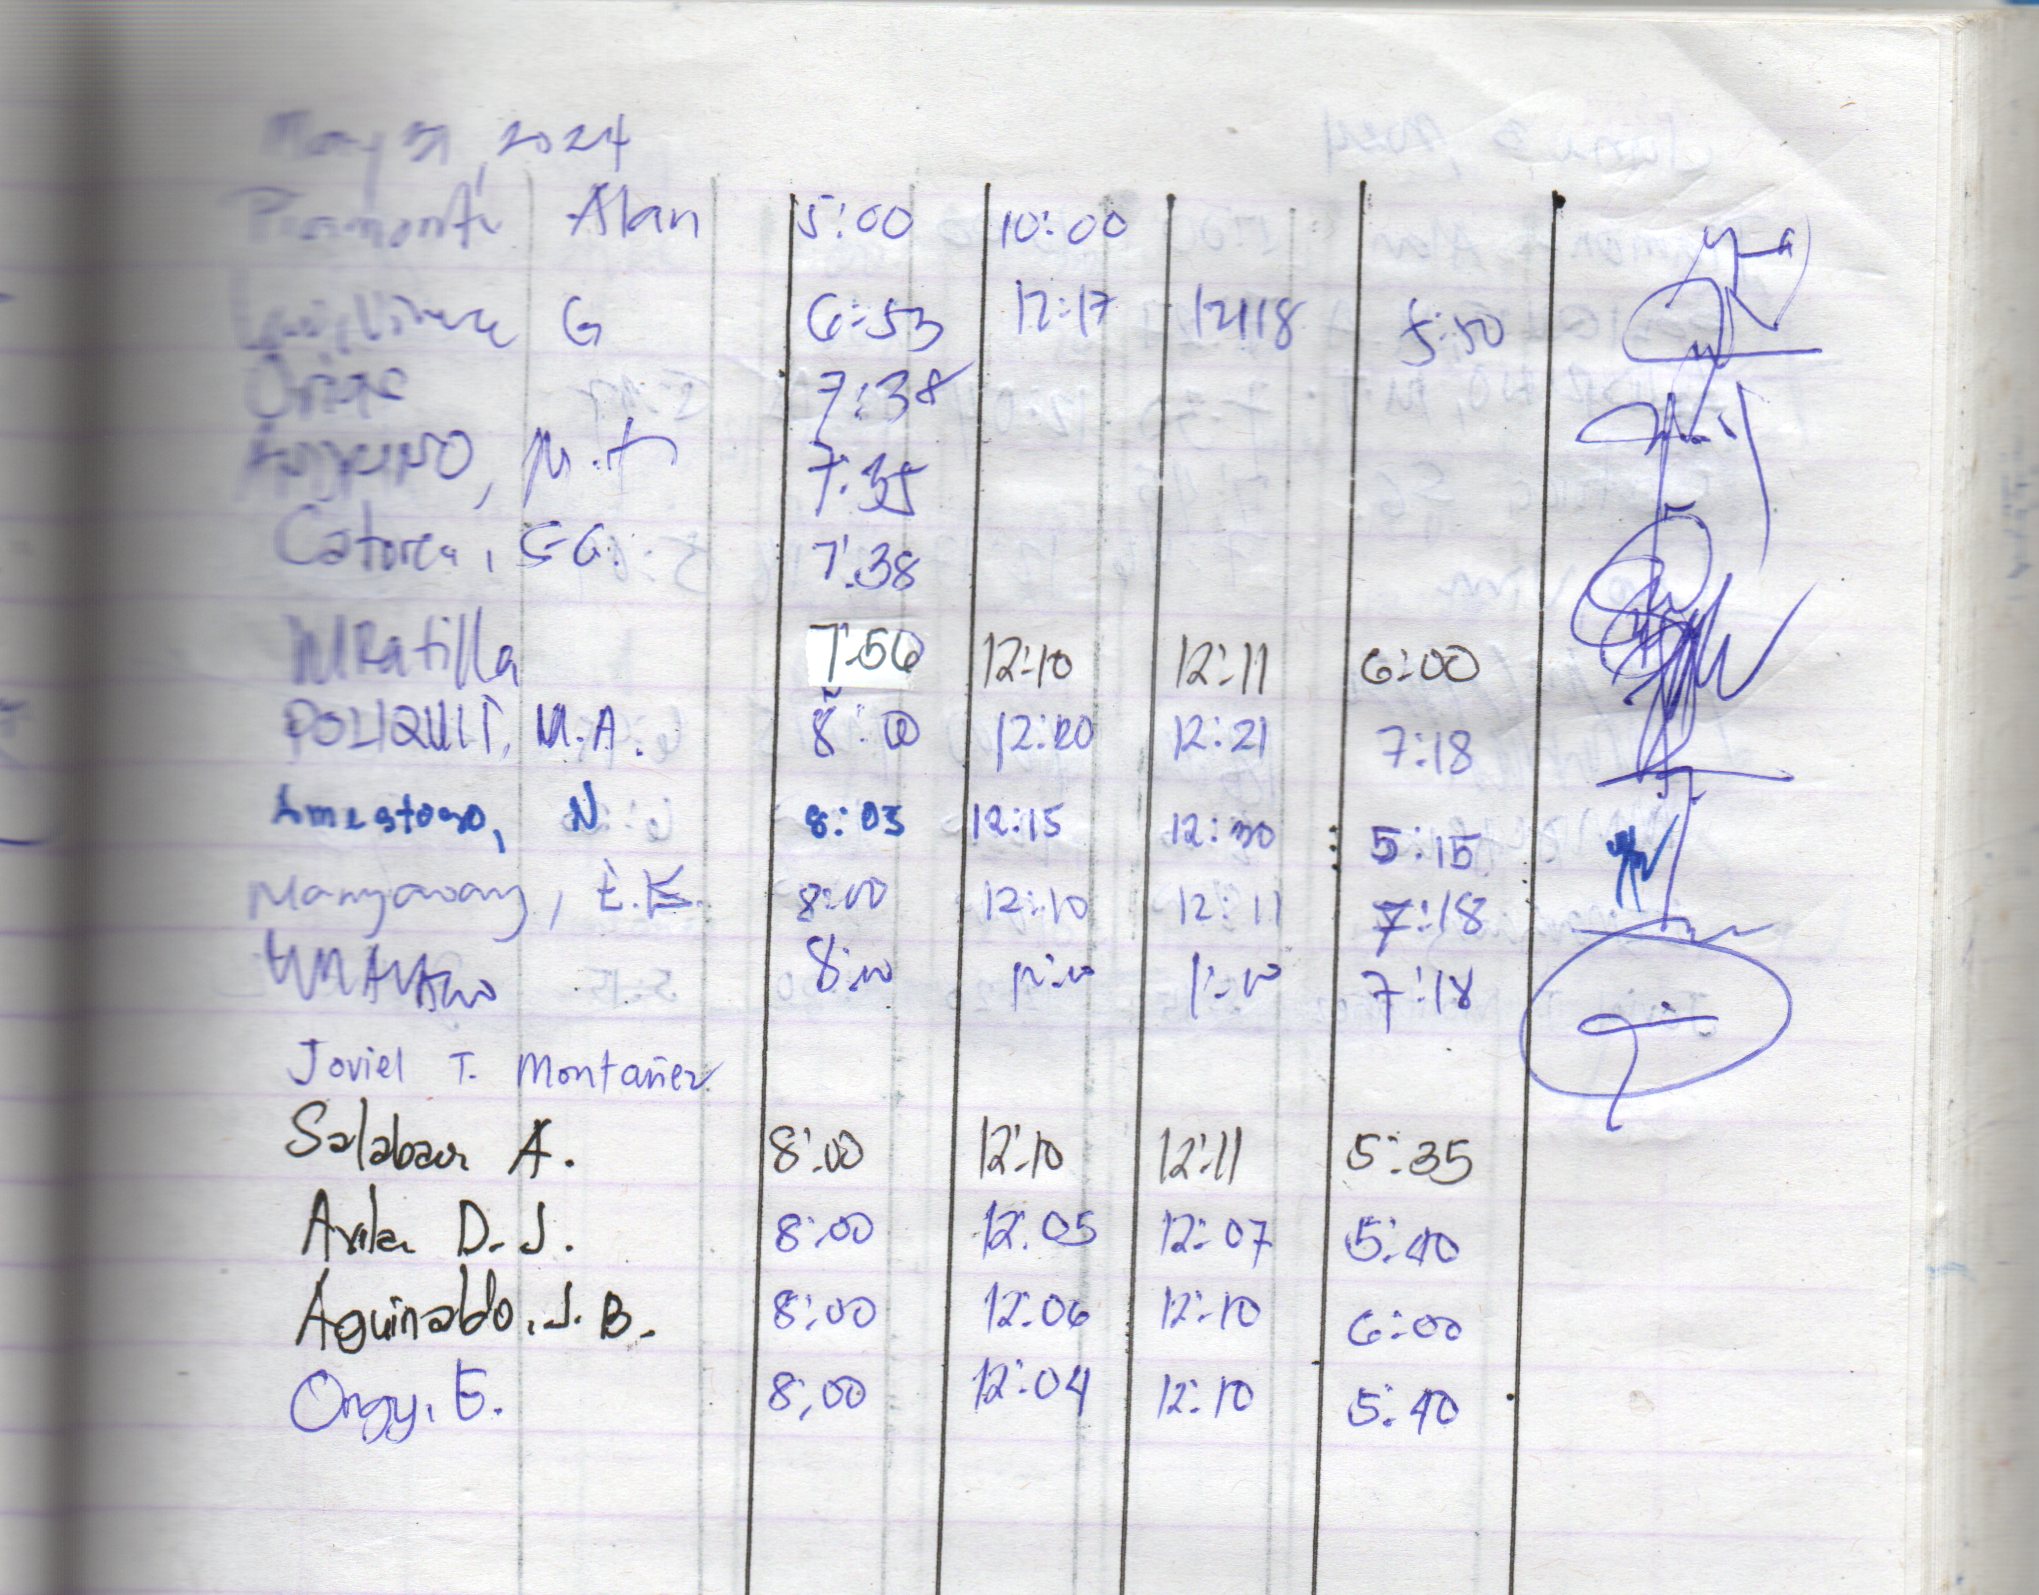 May 31, 2024
Alan 5:00 10:00
G 6:53 12:17 12:18 5:50
7:38
M. 7:35
Catorce, S G. 7:38
MRatilla 7:56 12:10 12:11 6:00
POLIQUIT, M.A. 8:00 12:20 12:21 7:18
Amestoso, N 8:03 12:15 12:30 5:15
Manyaway, E.K. 8:00 12:10 12:11 7:18
8:00 7:18
Joviel T. Montañez
Salabao A. 8:00 12:10 12:11 5:35
Avila D.J. 8:00 12:05 12:07 5:40
Aguinaldo, J.B. 8:00 12:06 12:10 6:00
Ongy, E. 8:00 12:04 12:10 5:40